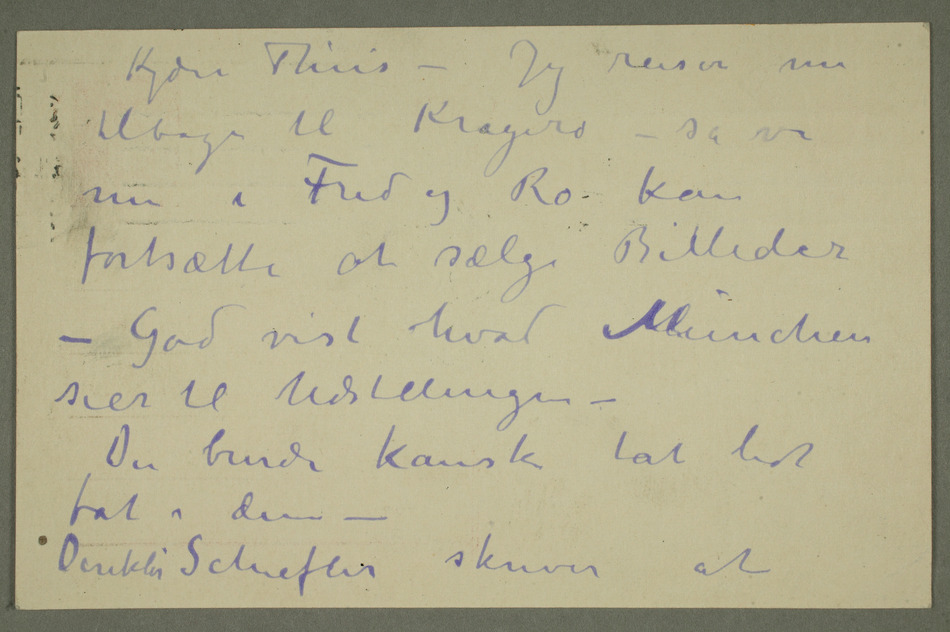 Kjære Thiis – Jeg reiser nu
tilbage til Kragerø – så vi
nu i Fred og Ro kan
fortsætte at sælge Billeder
– Gad vist hvad München
sier til Udstillingen –
Du burde kanske tat lidt
fat i dem –
Direktør Schiefler skriver at